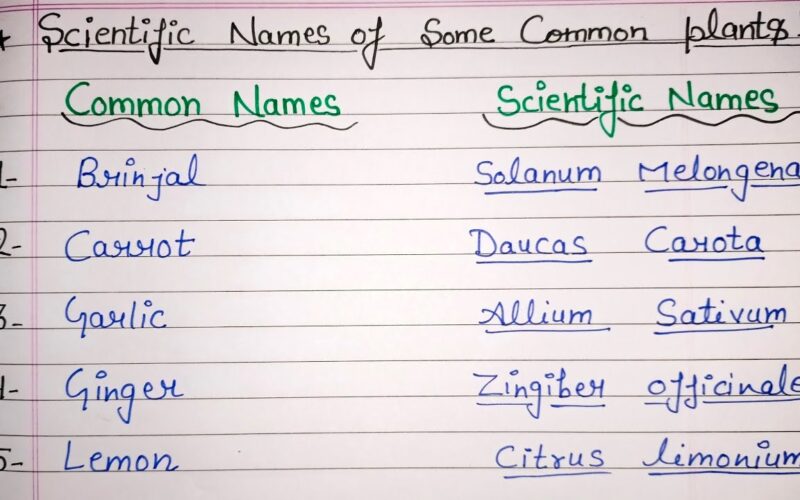 * Scientific Names of Some Common plants.
Common Names Scientific Names
1- Brinjal Solanum Melongena
2- Carrot Daucas Carota
3- Garlic Allium Sativum
4- Ginger Zingiber officinale
5- Lemon Citrus limonium